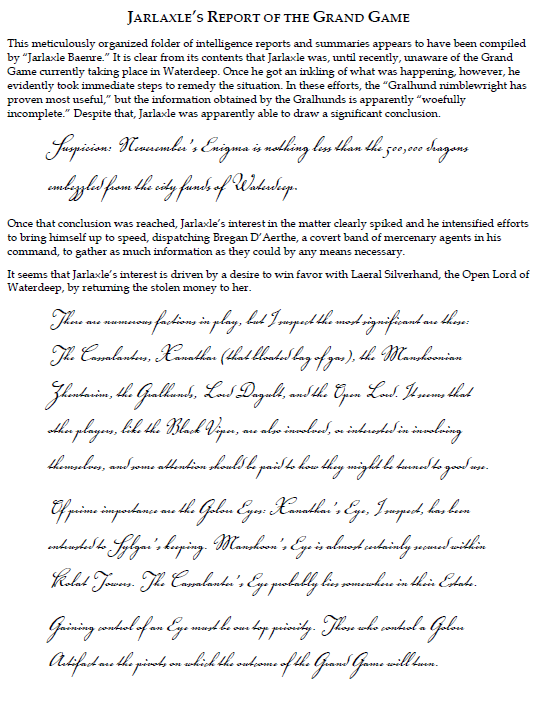 JARLAXLE'S REPORT OF THE GRAND GAME
This meticulously organized folder of intelligence reports and summaries appears to have been compiled
by “Jarlaxle Baenre.” It is clear from its contents that Jarlaxle was, until recently, unaware of the Grand
Game currently taking place in Waterdeep. Once he got an inkling of what was happening, however, he
evidently took immediate steps to remedy the situation. In these efforts, the “Gralhund nimblewright has
proven most useful,” but the information obtained by the Gralhunds is apparently “woefully
incomplete.” Despite that, Jarlaxle was apparently able to draw a significant conclusion.
Suspicion: Neverember's Enigma is nothing less than the 500,000 dragons
embezzled from the city funds of Waterdeep.
Once that conclusion was reached, Jarlaxle's interest in the matter clearly spiked and he intensified efforts
to bring himself up to speed, dispatching Bregan D'Aerthe, a covert band of mercenary agents in his
command, to gather as much information as they could by any means necessary.
It seems that Jarlaxle's interest is driven by a desire to win favor with Laeral Silverhand, the Open Lord of
Waterdeep, by returning the stolen money to her.
There are numerous factions in play, but I suspect the most significant are these:
The Cassalanters, Xanathar (that bloated bag of gas), the Manshoonian
Zhentarim, the Gralhunds, Lord Dagult, and the Open Lord. It seems that
other players, like the Black Viper, are also involved, or interested in involving
themselves, and some attention should be paid to how they might be turned to good use.
Of prime importance are the Golorr Eyes: Xanathar's Eye, I suspect, has been
entrusted to Sylgar's keeping. Manshoon's Eye is almost certainly secured within
Kolat Towers. The Cassalanter's Eye probably lies somewhere in their Estate.
Gaining control of an Eye must be our top priority. Those who control a Golorr
Artifact are the pivots on which the outcome of the Grand Game will turn.